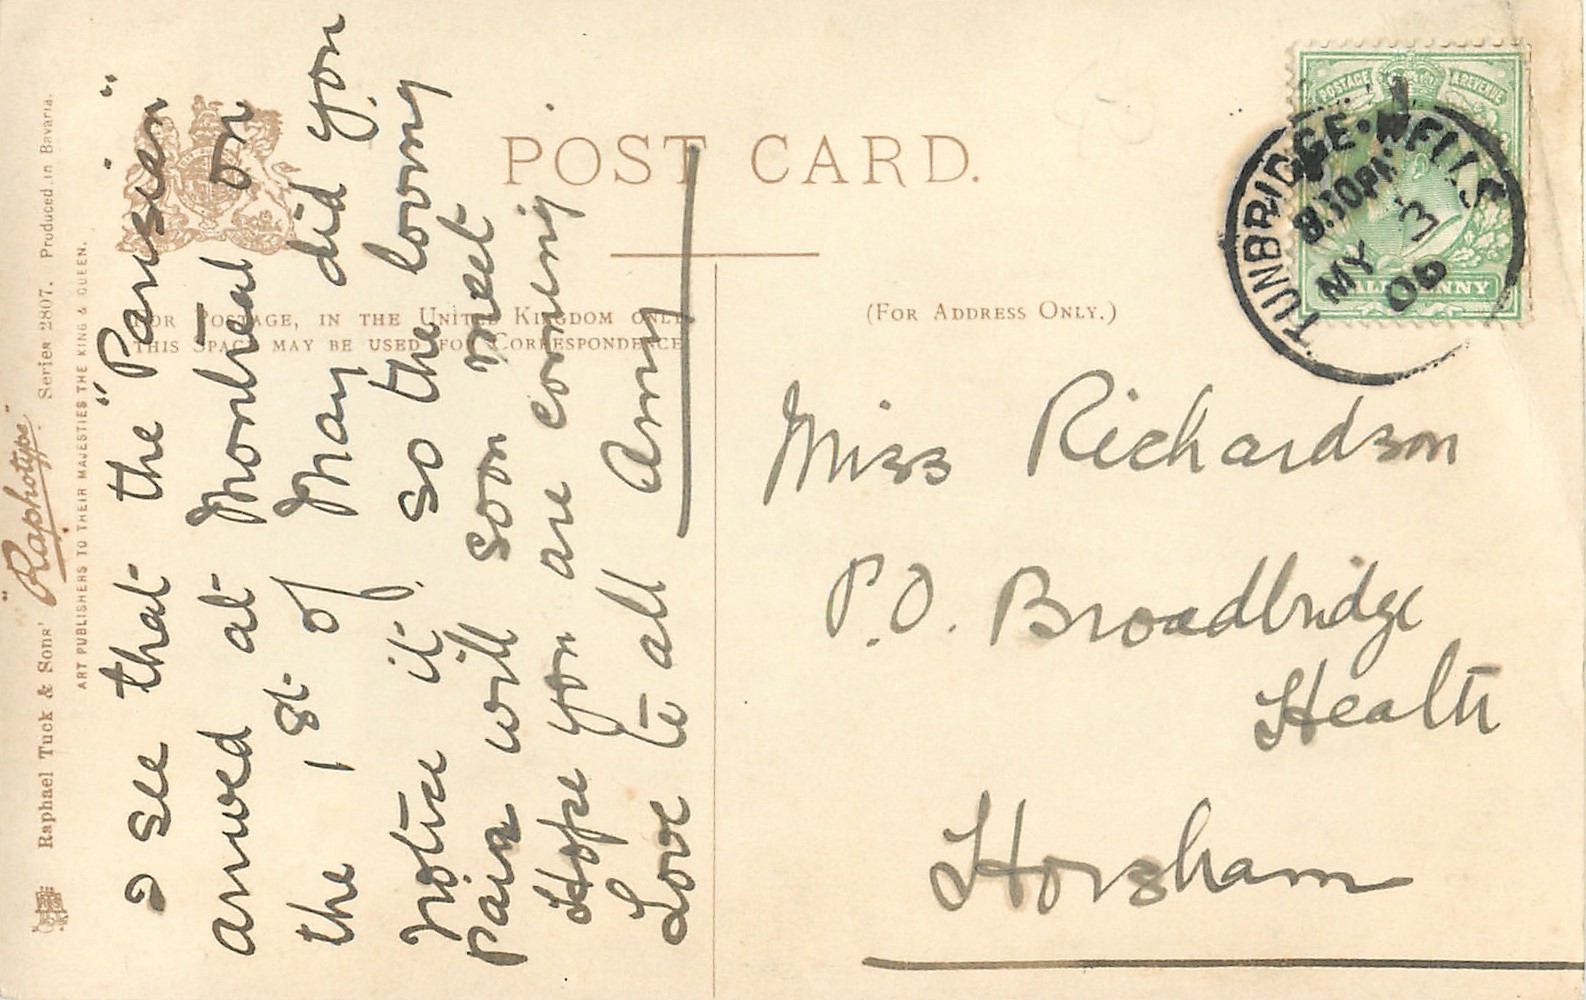 Raphael Tuck & Sons' "Raphotype" Series 2807. Produced in Bavaria.
ART PUBLISHERS TO THEIR MAJESTIES THE KING & QUEEN.
POST CARD.
FOR POSTAGE, IN THE UNITED KINGDOM ONLY
THIS SPACE MAY BE USED FOR CORRESPONDENCE
(FOR ADDRESS ONLY.)
I see that the "Parisian"
arrived at Montreal on
the 1st of May did you
notice it. so the loving
pair will soon meet
Hope you are coming
Love to all Amy
POSTAGE & REVENUE
HALFPENNY
TUNBRIDGE·WELLS
8.30PM
MY 3
06
Miss Richardson
P.O. Broadbridge
Heath
Horsham